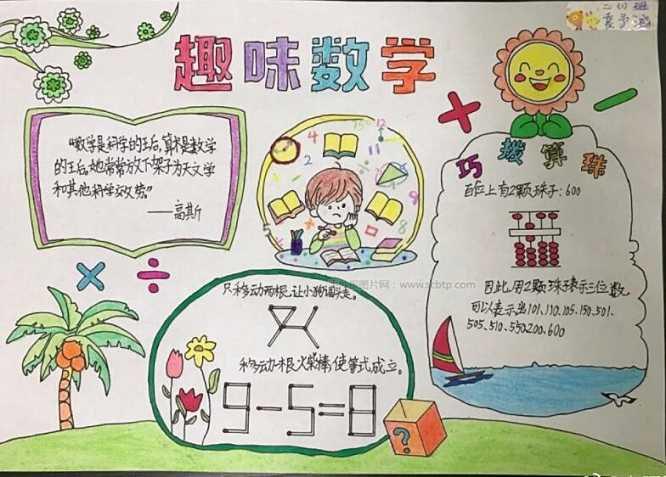 趣味数学
“数学是科学的王后,算术是数学
的王后。她常常放下架子为天文学
和其他科学效劳。”
——高斯
巧拨算珠
百位上有2颗珠子:600
因此,用2颗珠表示三位数,
可以表示出101.110.105.150.501.
505.510.550.200.600
图片网:www.scbtp.com
只移动两根,让小狗回头走。
移动一根火柴棒,使等式成立。
9-5=8
?